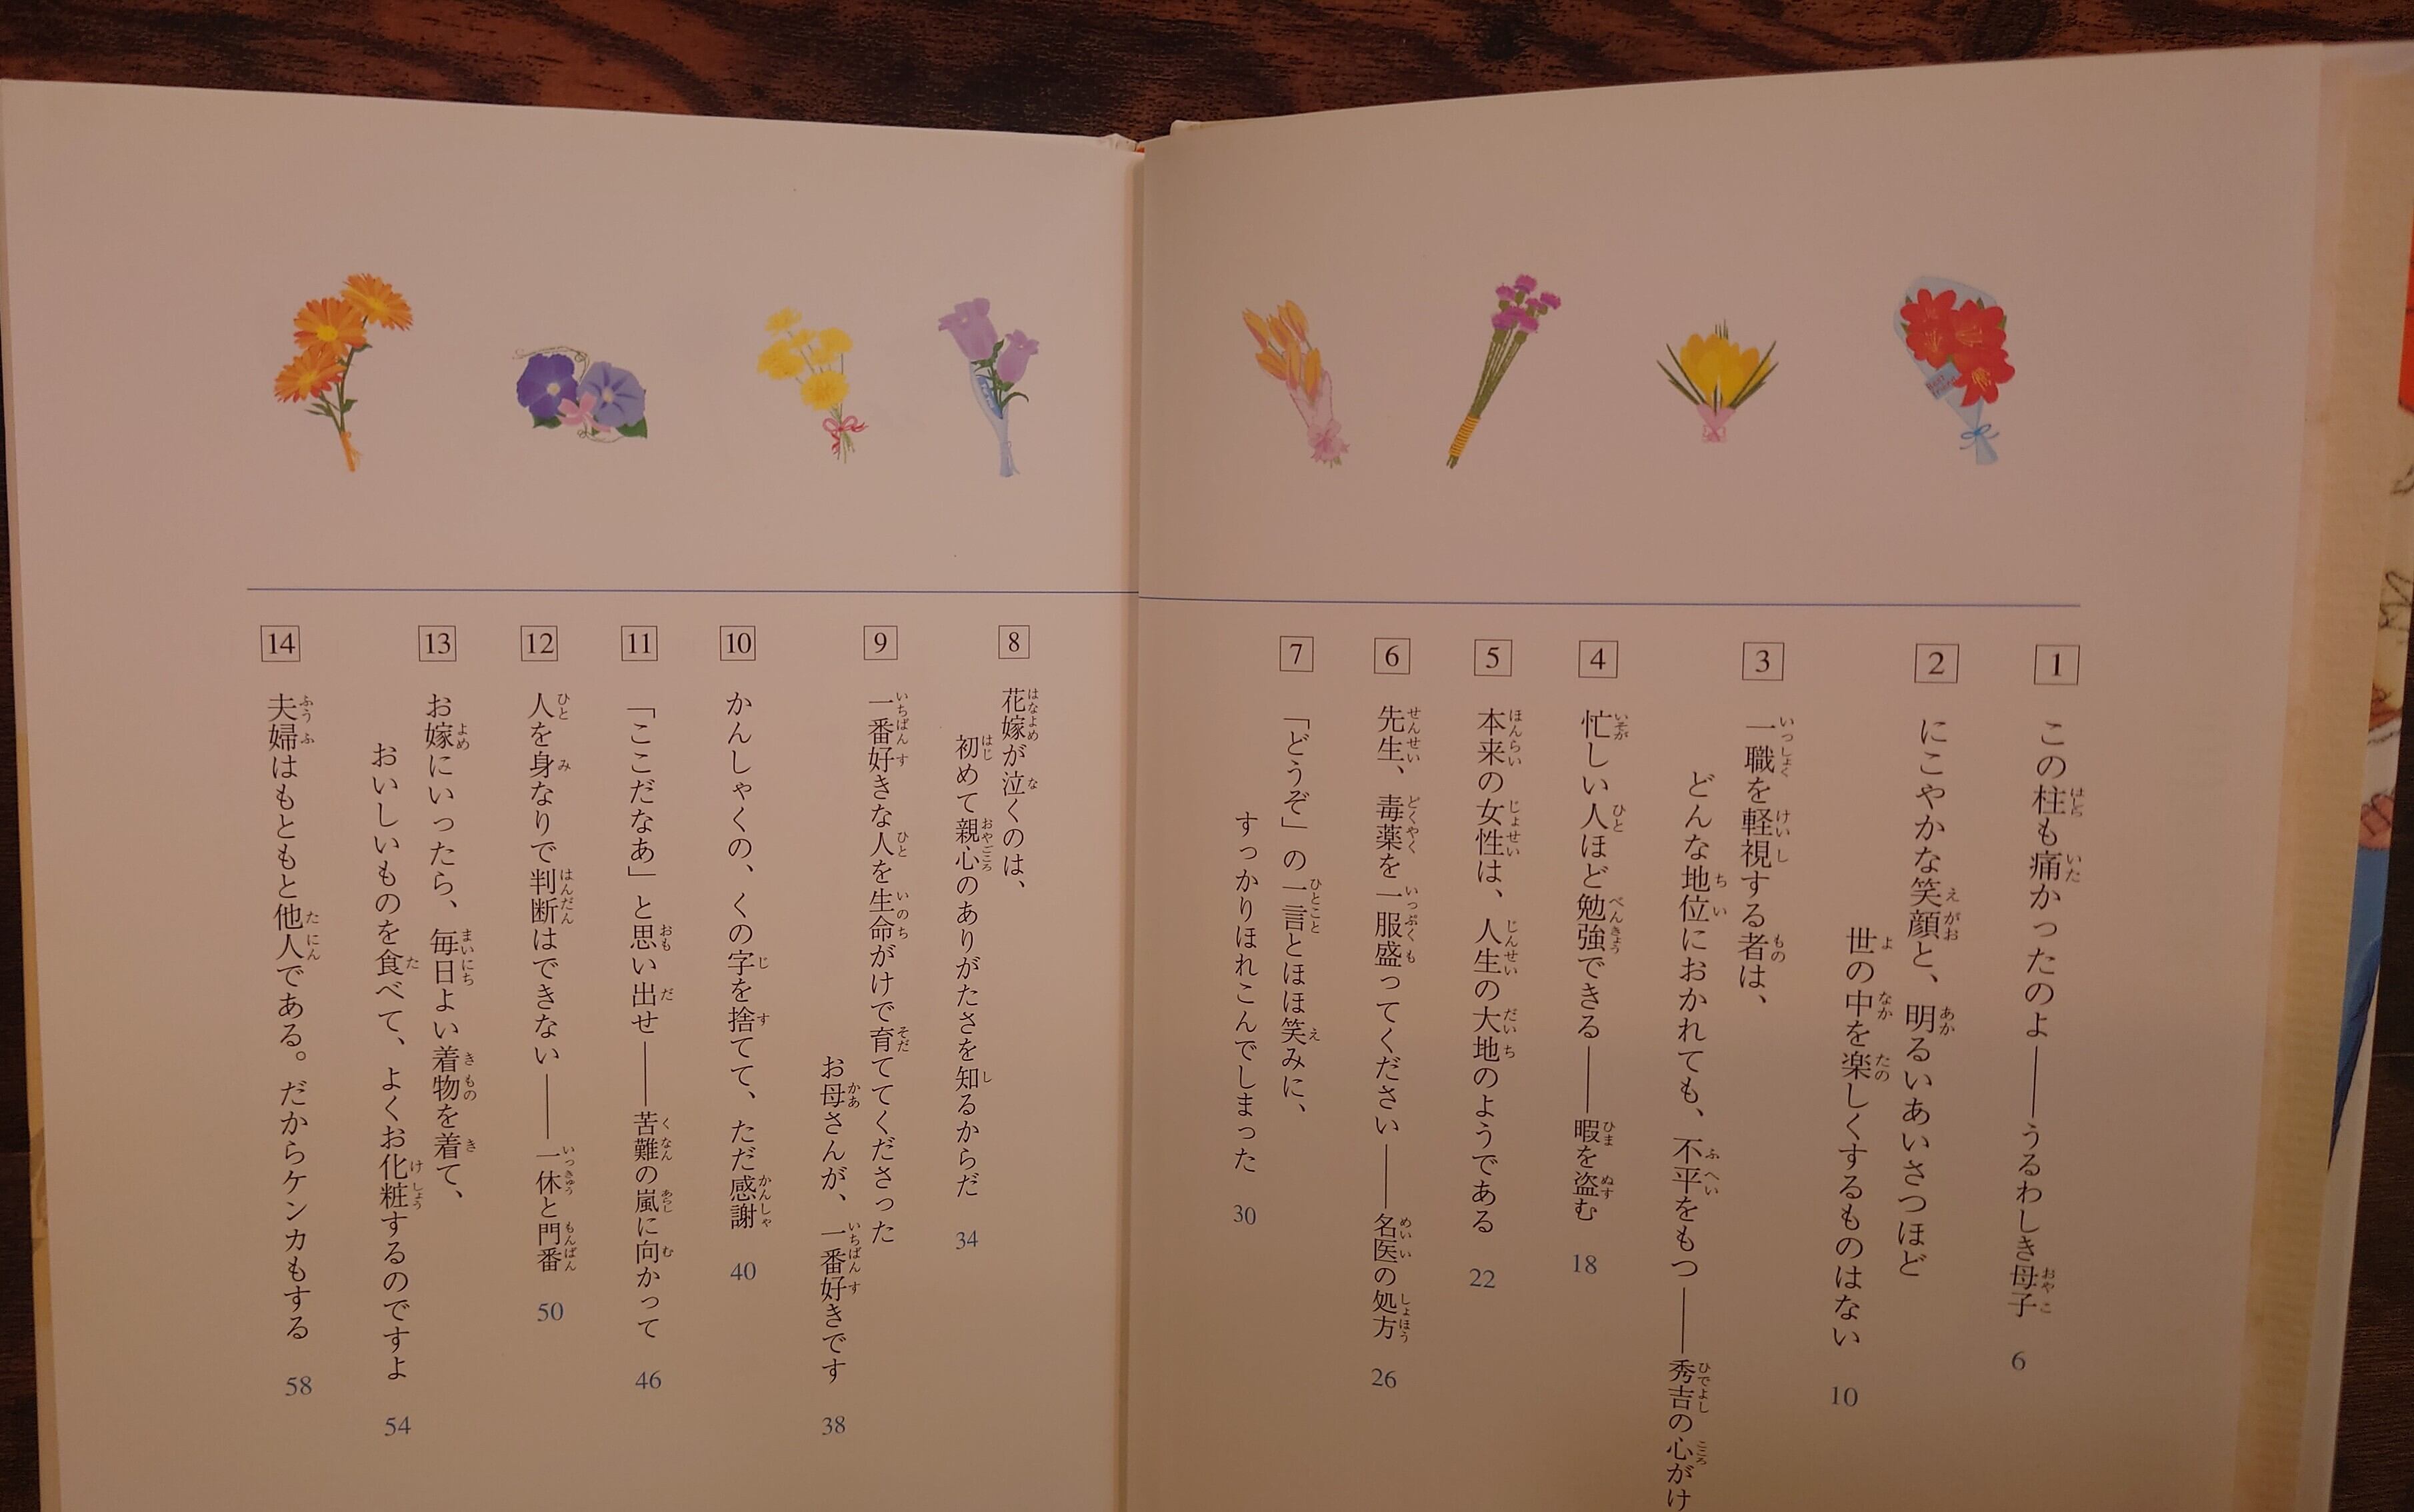 1 この柱も痛かったのよ――うるわしき母子 6
2 にこやかな笑顔と、明るいあいさつほど
世の中を楽しくするものはない 10
3 一職を軽視する者は、
どんな地位におかれても、不平をもつ――秀吉の心がけ
4 忙しい人ほど勉強できる――暇を盗む 18
5 本来の女性は、人生の大地のようである 22
6 先生、毒薬を一服盛ってください――名医の処方 26
7 「どうぞ」の一言とほほ笑みに、
すっかりほれこんでしまった 30
8 花嫁が泣くのは、
初めて親心のありがたさを知るからだ 34
9 一番好きな人を生命がけで育ててくださった
お母さんが、一番好きです 38
10 かんしゃくの、くの字を捨てて、ただ感謝 40
11 「ここだなあ」と思い出せ――苦難の嵐に向かって 46
12 人を身なりで判断はできない――一休と門番 50
13 お嫁にいったら、毎日よい着物を着て、
おいしいものを食べて、よくお化粧するのですよ 54
14 夫婦はもともと他人である。だからケンカもする 58